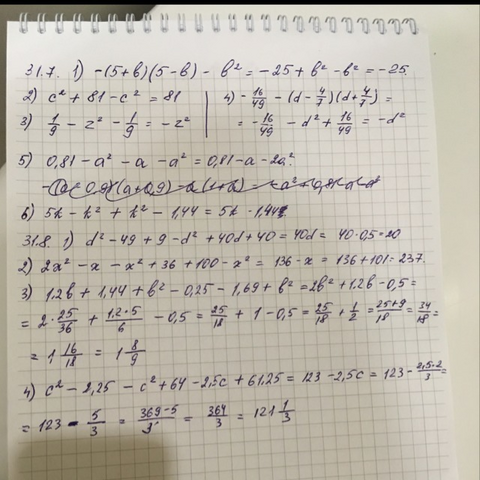 31.7. 1) -(5+b)(5-b) - b² = -25 + b² - b² = -25.
2) c² + 81 - c² = 81
4) -16/49 - (d - 4/7)(d + 4/7) =
3) 1/9 - z² - 1/9 = -z²
= -16/49 - d² + 16/49 = -d²
5) 0,81 - a² - a - a² = 0,81 - a - 2a².
6) 5k - k² + k² - 1,44 = 5k - 1,44
31.8. 1) d² - 49 + 9 - d² + 40d + 40 = 40d = 40·0,5 = 20
2) 2x² - x - x² + 36 + 100 - x² = 136 - x = 136 + 101 = 237.
3) 1,2b + 1,44 + b² - 0,25 - 1,69 + b² = 2b² + 1,2b - 0,5 =
= 2·25/36 + 1,2·5/6 - 0,5 = 25/18 + 1 - 0,5 = 25/18 + 1/2 = 25+9/18 = 34/18 =
= 1 16/18 = 1 8/9
4) c² - 2,25 - c² + 64 - 2,5c + 61,25 = 123 - 2,5c = 123 - 2,5·2/3 =
= 123 - 5/3 = 369-5/3 = 364/3 = 121 1/3